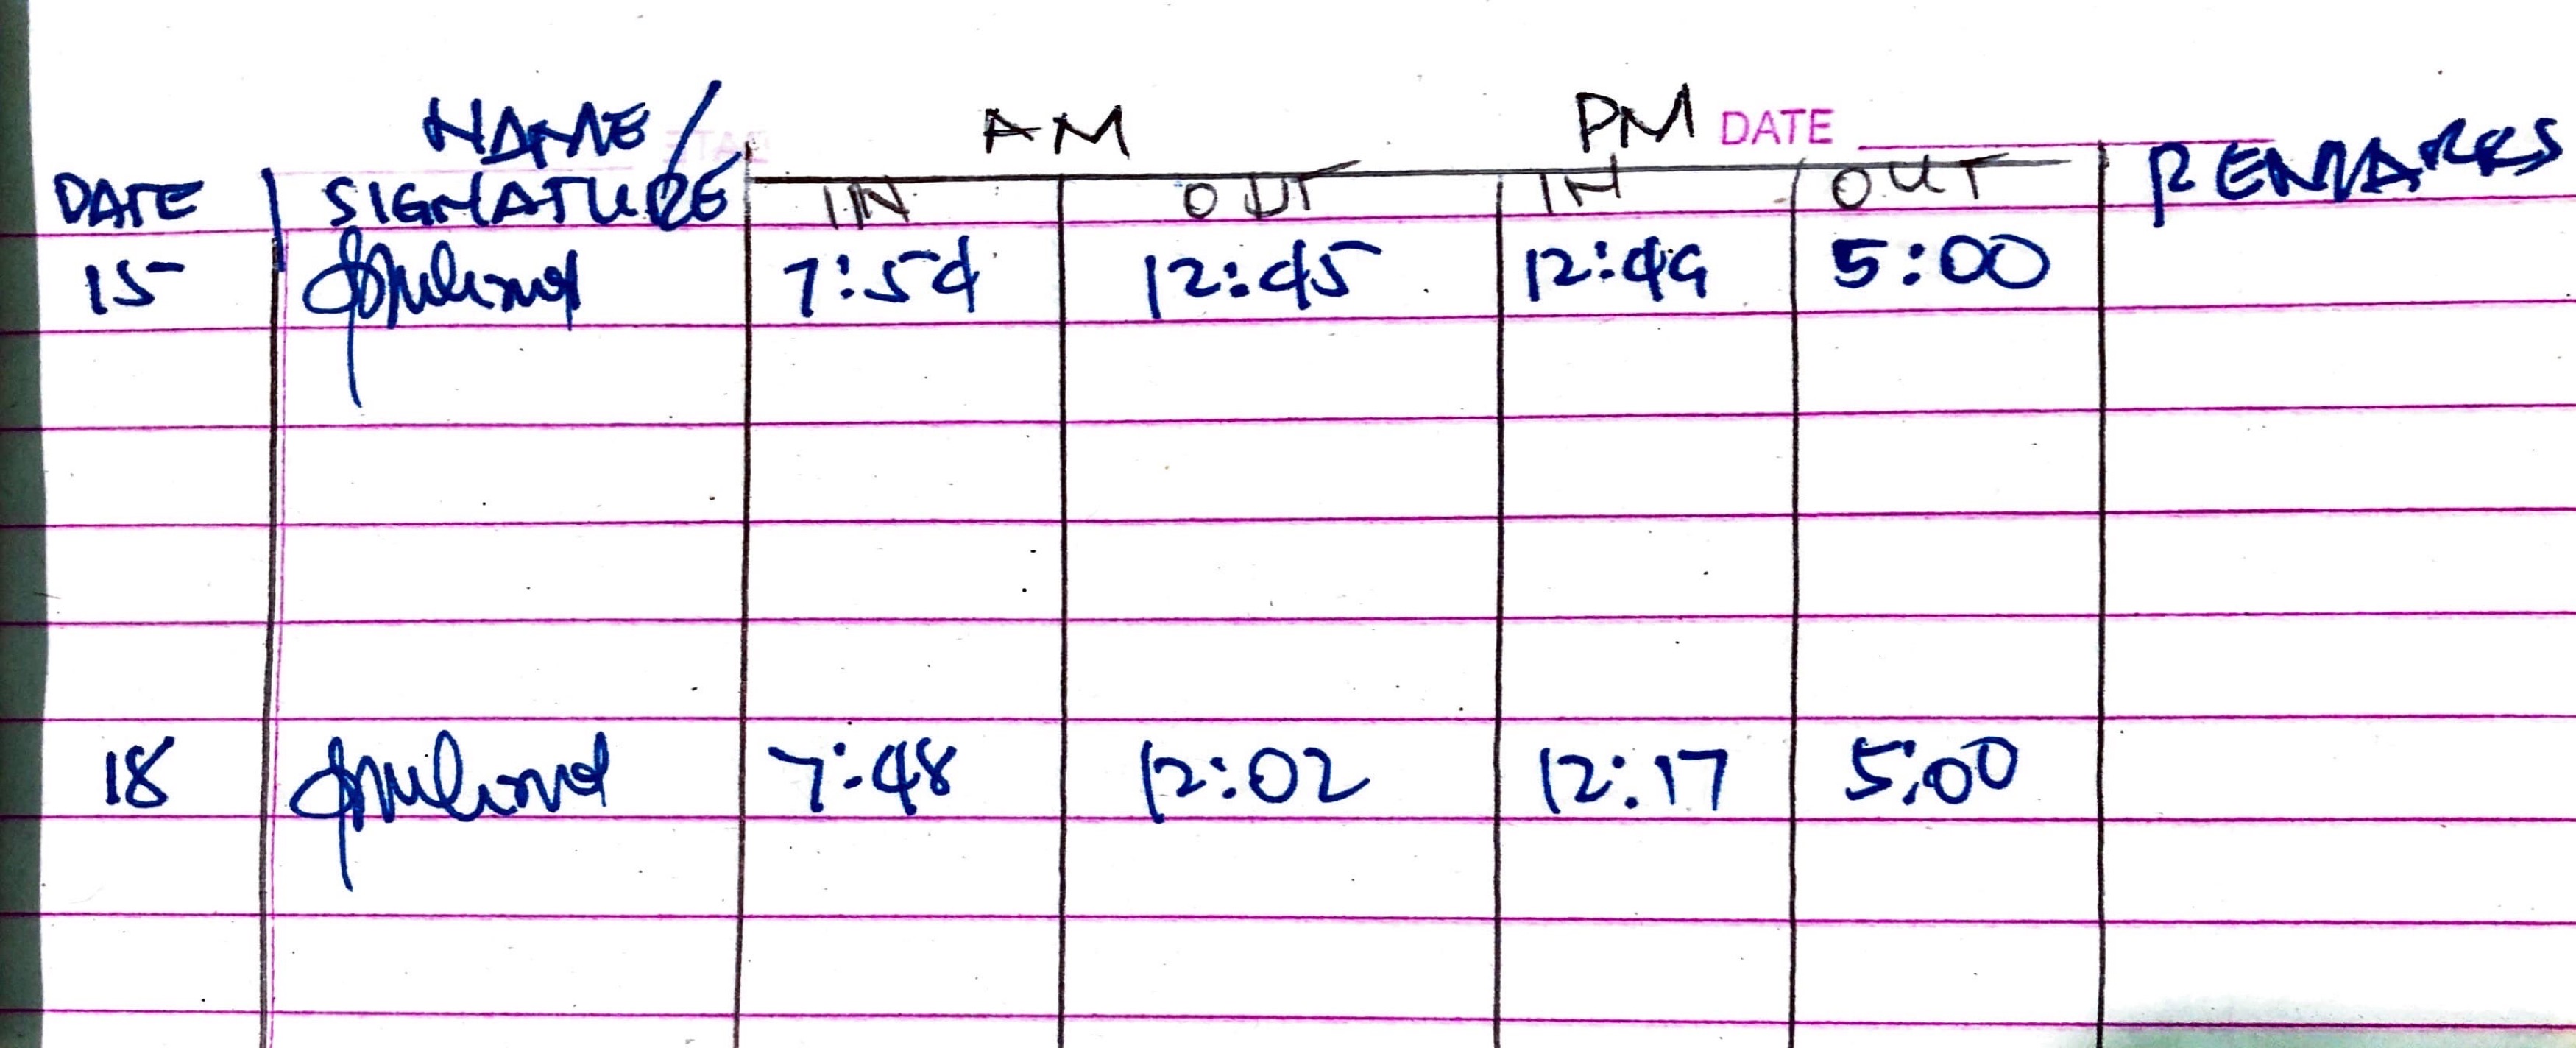 NAME/ AM PM DATE
DATE SIGNATURE IN OUT IN OUT REMARKS
15 7:54 12:45 12:49 5:00
18 7:48 12:02 12:17 5:00